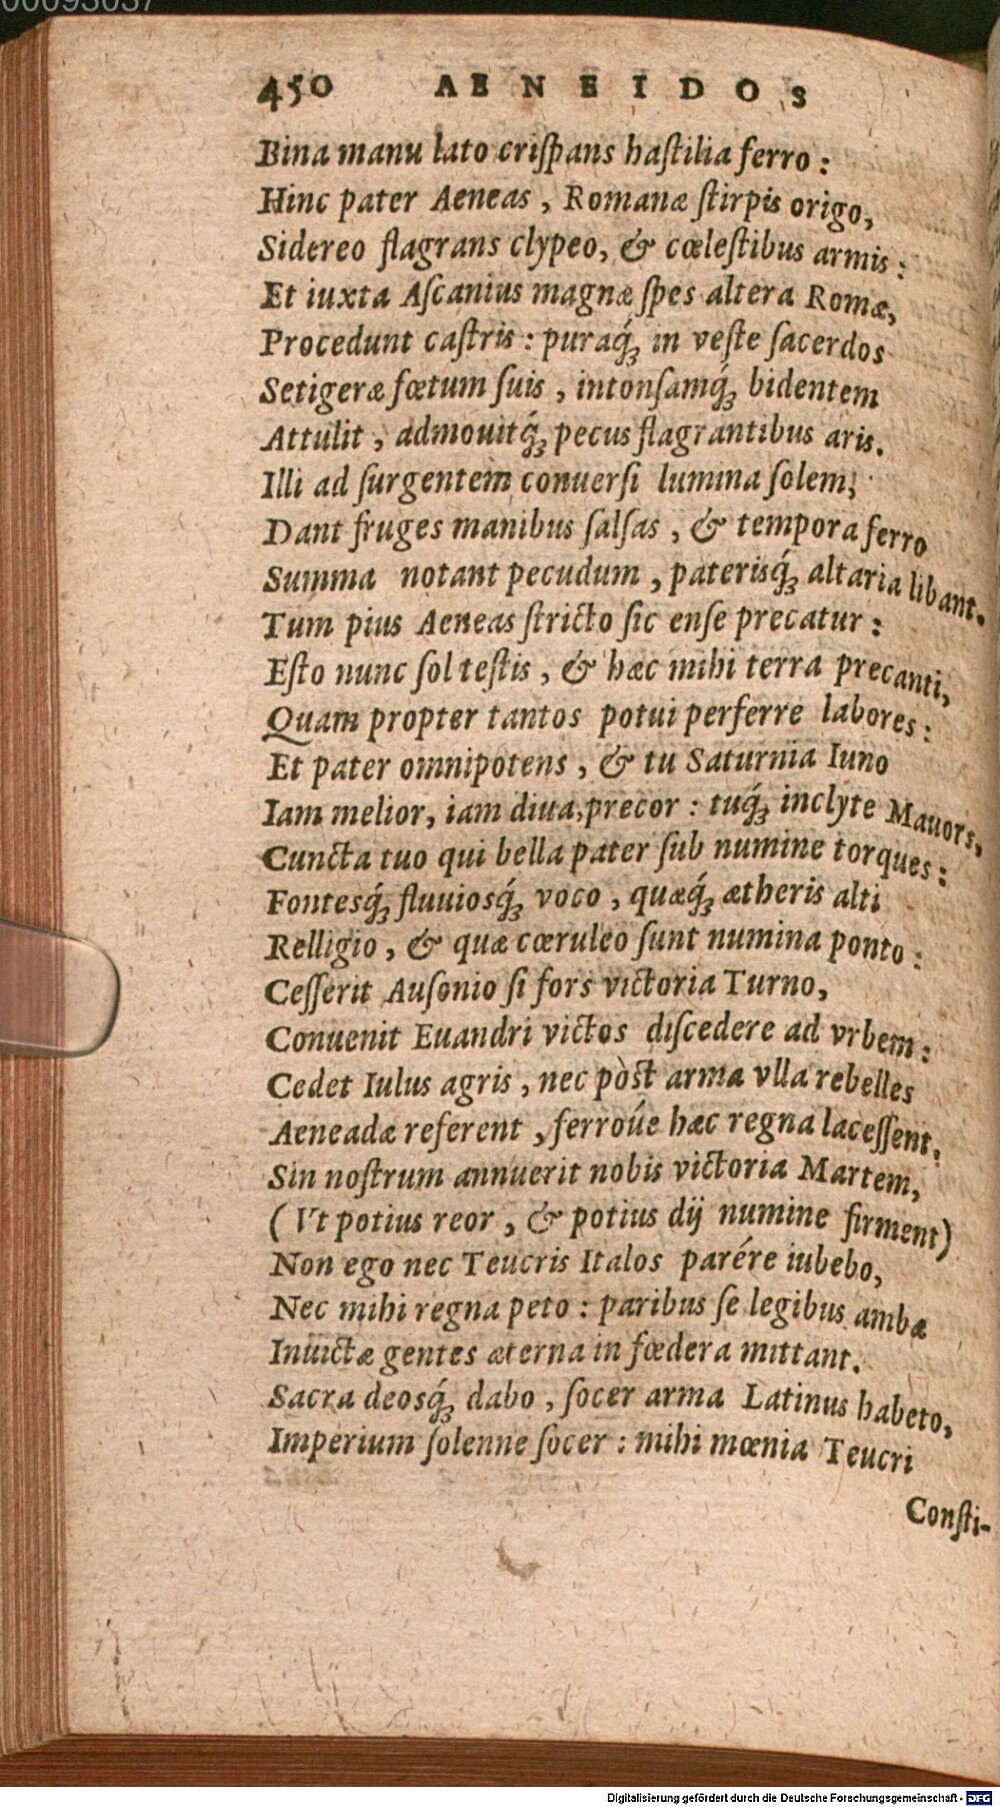 00093037
450 AENEIDOS
Bina manu lato criſpans haſtilia ferro:
Hinc pater Aeneas, Romanæ ſtirpis origo,
Sidereo flagrans clypeo, & cœleſtibus armis:
Et iuxta Aſcanius magnæ ſpes altera Romæ,
Procedunt caſtris: puraq́ꝫ in veſte ſacerdos
Setigeræ fœtum ſuis, intonſamq́ꝫ bidentem
Attulit, admouitq́ꝫ pecus flagrantibus aris.
Illi ad ſurgentem conuerſi lumina ſolem,
Dant fruges manibus ſalſas, & tempora ferro
Summa notant pecudum, paterisq́ꝫ altaria libant.
Tum pius Aeneas ſtricto ſic enſe precatur:
Eſto nunc ſol teſtis, & hæc mihi terra precanti,
Quam propter tantos potui perferre labores:
Et pater omnipotens, & tu Saturnia Iuno
Iam melior, iam diua, precor: tuq́ꝫ inclyte Mauors,
Cuncta tuo qui bella pater ſub numine torques:
Fontesq́ꝫ fluuiosq́ꝫ voco, quæq́ꝫ ætheris alti
Relligio, & quæ cœruleo ſunt numina ponto:
Ceſſerit Auſonio ſi fors victoria Turno,
Conuenit Euandri victos diſcedere ad vrbem:
Cedet Iulus agris, nec pòſt arma vlla rebelles
Aeneadæ referent, ferroúe hæc regna laceſſent.
Sin noſtrum annuerit nobis victoria Martem,
(Vt potius reor, & potius dij numine firment)
Non ego nec Teucris Italos parére iubebo,
Nec mihi regna peto: paribus ſe legibus ambæ
Inuictæ gentes æterna in fœdera mittant.
Sacra deosq́ꝫ dabo, ſocer arma Latinus habeto,
Imperium ſolenne ſocer: mihi mœnia Teucri
Conſti-
Digitalisierung gefördert durch die Deutsche Forschungsgemeinschaft - DFG